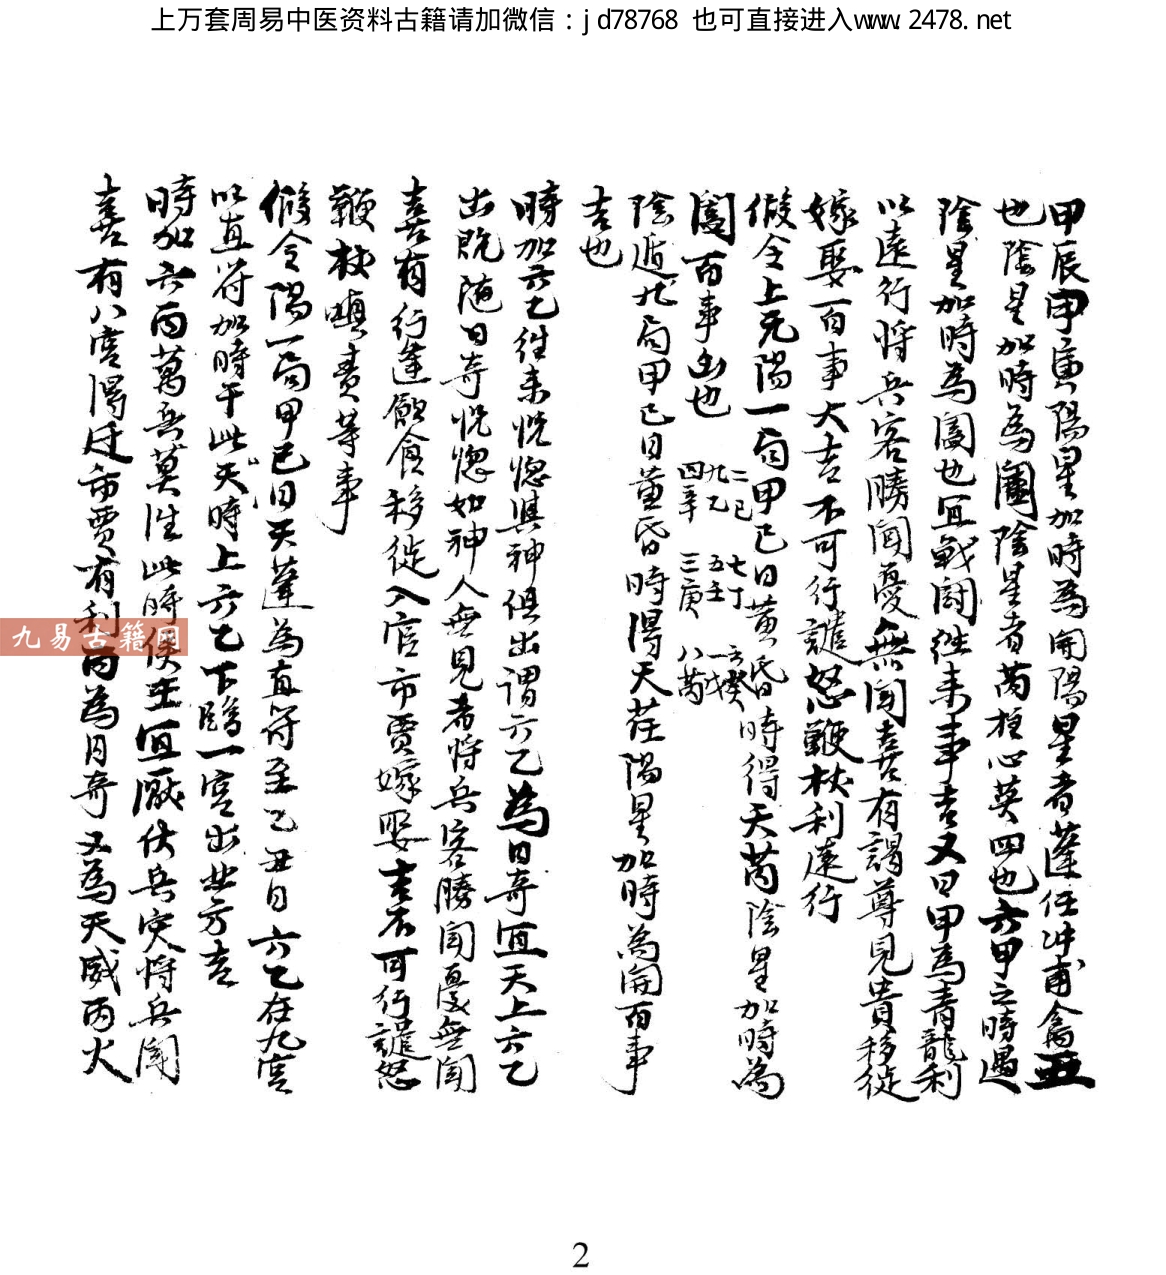 上万套周易中医资料古籍请加微信：jd78768 也可直接进入www.2478.net
甲辰甲寅陽星加時為開陽星者蓬任冲甫禽五
也陰星加時為闔陰星者芮柱心英四也六甲之時遇
陰星加時為闔也宜戦闘往来事吉又曰甲為青龍利
以遠行将兵客勝闻憂無闻喜有謁尊見貴移徙
嫁娶百事大吉不可行譴怒鞭杖利遠行
假令上元陽一局甲己日黄昏時得天芮陰星加時為
闔百事凶也
二己 七丁 六癸
九乙 五壬 一戊
四辛 三庚 八芮
陰遁九局甲己日黄昏時得天任陽星加時為開百事
吉也
時加六乙往来恍惚與神俱出謂六乙為日奇宜天上六乙
出既随日奇恍惚如神人無見者将兵客勝闻憂無闻
喜有行逢飲食移徙入官市贾嫁娶吉不可行譴怒
鞭杖嗔责等事
假令陽一局甲己日天蓬為直符至乙丑日六乙在九宫
以直符加時干此天時上六乙下臨一宫出此方吉
時加六丙萬兵莫往此時侯王宜厭伏兵突将兵闻
喜有八宫得迁市贾有利丙為月奇又為天威丙火
九易古籍网
2